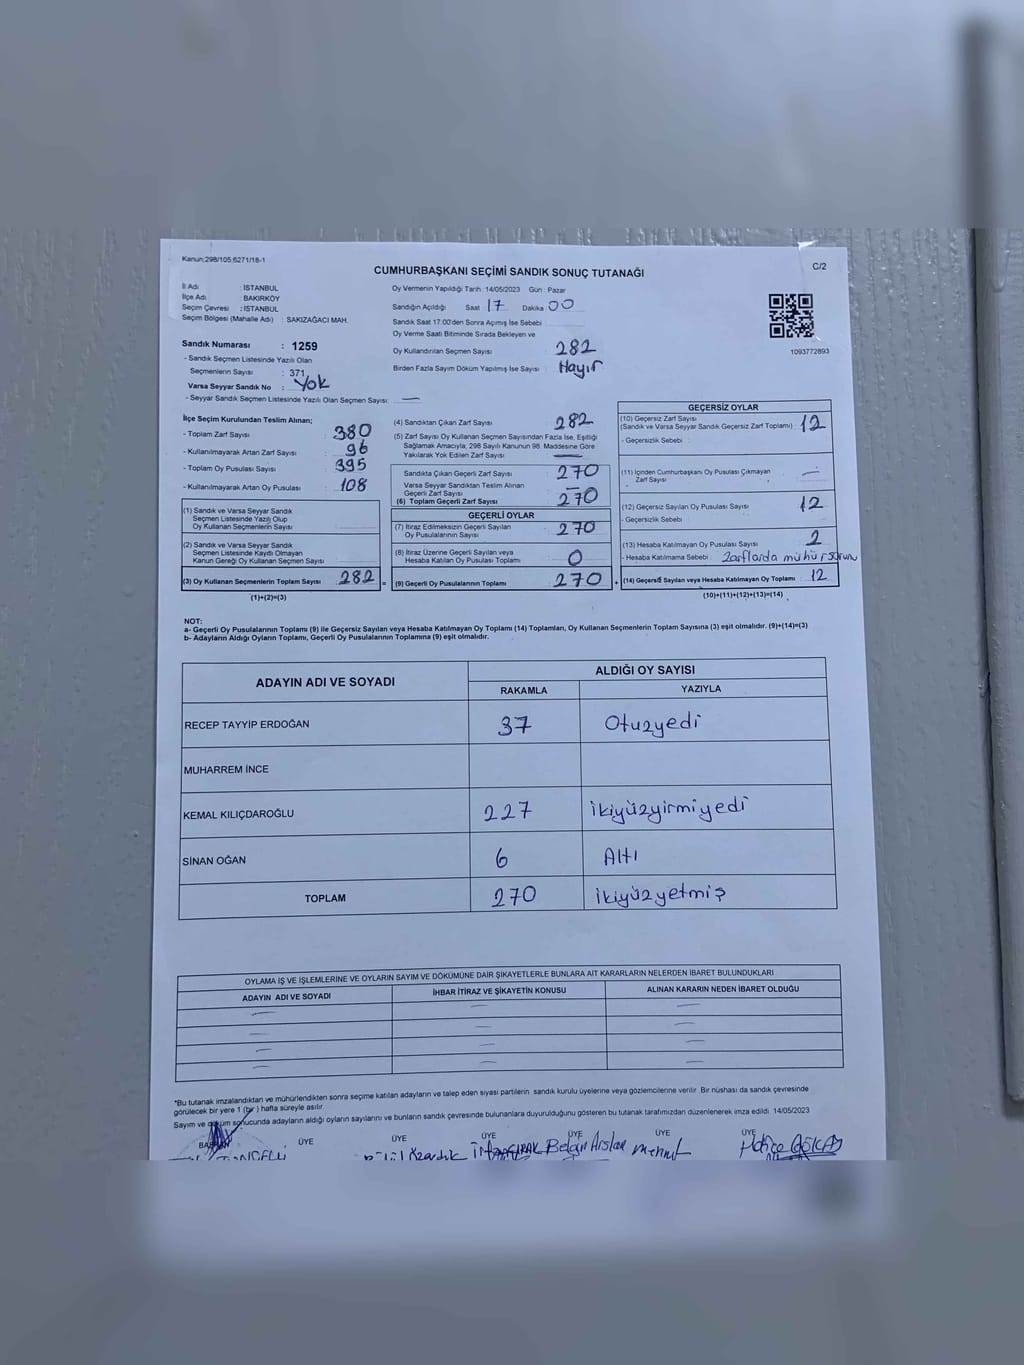 Kanun;298/105;6271/18-1
CUMHURBAŞKANI SEÇİMİ SANDIK SONUÇ TUTANAĞI
C/2
İl Adı : İSTANBUL
İlçe Adı : BAKIRKÖY
Seçim Çevresi : İSTANBUL
Seçim Bölgesi (Mahalle Adı) : SAKIZAĞACI MAH.
Oy Vermenin Yapıldığı Tarih :14/05/2023 Gün : Pazar
Sandığın Açıldığı Saat 17 Dakika 00
Sandık Saat 17:00'den Sonra Açımış İse Sebebi
Oy Verme Saati Bitiminde Sırada Bekleyen ve
Oy Kullandırılan Seçmen Sayısı 282
Birden Fazla Sayım Döküm Yapılmış İse Sayısı : Hayır
1093772893
Sandık Numarası : 1259
- Sandık Seçmen Listesinde Yazılı Olan
Seçmenlerin Sayısı : 371
Varsa Seyyar Sandık No : Yok
- Seyyar Sandık Seçmen Listesinde Yazılı Olan Seçmen Sayısı: —
İlçe Seçim Kurulundan Teslim Alınan;
- Toplam Zarf Sayısı : 380
- Kullanılmayarak Artan Zarf Sayısı : 96
- Toplam Oy Pusulası Sayısı : 395
- Kullanılmayarak Artan Oy Pusulası : 108
(1) Sandık ve Varsa Seyyar Sandık
Seçmen Listesinde Yazılı Olup
Oy Kullanan Seçmenlerin Sayısı
(2) Sandık ve Varsa Seyyar Sandık
Seçmen Listesinde Kayıtlı Olmayan
Kanun Gereği Oy Kullanan Seçmen Sayısı
(3) Oy Kullanan Seçmenlerin Toplam Sayısı 282 =
(1)+(2)=(3)
(4) Sandıktan Çıkan Zarf Sayısı : 282
(5) Zarf Sayısı Oy Kullanan Seçmen Sayısından Fazla İse, Eşitliği
Sağlamak Amacıyla, 298 Sayılı Kanunun 98. Maddesine Göre
Yakılarak Yok Edilen Zarf Sayısı : —
Sandıkta Çıkan Geçerli Zarf Sayısı : 270
Varsa Seyyar Sandıktan Teslim Alınan
Geçerli Zarf Sayısı —
(6) Toplam Geçerli Zarf Sayısı : 270
GEÇERLİ OYLAR
(7) İtiraz Edilmeksizin Geçerli Sayılan
Oy Pusulalarının Sayısı : 270
(8) İtiraz Üzerine Geçerli Sayılan veya
Hesaba Katılan Oy Pusulası Toplamı : 0
(9) Geçerli Oy Pusulalarının Toplamı : 270 +
GEÇERSİZ OYLAR
(10) Geçersiz Zarf Sayısı
(Sandık ve Varsa Seyyar Sandık Geçersiz Zarf Toplamı) : 12
- Geçersizlik Sebebi :
(11) İçinden Cumhurbaşkanı Oy Pusulası Çıkmayan
Zarf Sayısı —
(12) Geçersiz Sayılan Oy Pusulası Sayısı : 12
- Geçersizlik Sebebi
(13) Hesaba Katılmayan Oy Pusulası Sayısı : 2
- Hesaba Katılmama Sebebi : Zarflarda mühür sorunu
(14) Geçersiz Sayılan veya Hesaba Katılmayan Oy Toplamı : 12
(10)+(11)+(12)+(13)=(14)
NOT:
a- Geçerli Oy Pusulalarının Toplamı (9) ile Geçersiz Sayılan veya Hesaba Katılmayan Oy Toplamı (14) Toplamları, Oy Kullanan Seçmenlerin Toplam Sayısına (3) eşit olmalıdır. (9)+(14)=(3)
b- Adayların Aldığı Oyların Toplamı, Geçerli Oy Pusulalarının Toplamına (9) eşit olmalıdır.
ADAYIN ADI VE SOYADI ALDIĞI OY SAYISI
RAKAMLA YAZIYLA
RECEP TAYYİP ERDOĞAN 37 Otuzyedi
MUHARREM İNCE
KEMAL KILIÇDAROĞLU 227 ikiyüzyirmiyedi
SİNAN OĞAN 6 Altı
TOPLAM 270 ikiyüzyetmiş
OYLAMA İŞ VE İŞLEMLERİNE VE OYLARIN SAYIM VE DÖKÜMÜNE DAİR ŞİKAYETLERLE BUNLARA AİT KARARLARIN NELERDEN İBARET BULUNDUKLARI
ADAYIN ADI VE SOYADI İHBAR İTİRAZ VE ŞİKAYETİN KONUSU ALINAN KARARIN NEDEN İBARET OLDUĞU
*Bu tutanak imzalandıktan ve mühürlendikten sonra seçime katılan adayların ve talep eden siyasi partilerin sandık kurulu üyelerine veya gözlemcilerine verilir. Bir nüshası da sandık çevresinde
görülecek bir yere 1 (bir) hafta süreyle asılır.
Sayım ve döküm sonucunda adayların aldığı oyların sayılarını ve bunların sandık çevresinde bulunanlara duyurulduğunu gösteren bu tutanak tarafımızdan düzenlenerek imza edildi. 14/05/2023
ÜYE ÜYE ÜYE ÜYE ÜYE ÜYE
Arslan Hatice GÖKÇAY